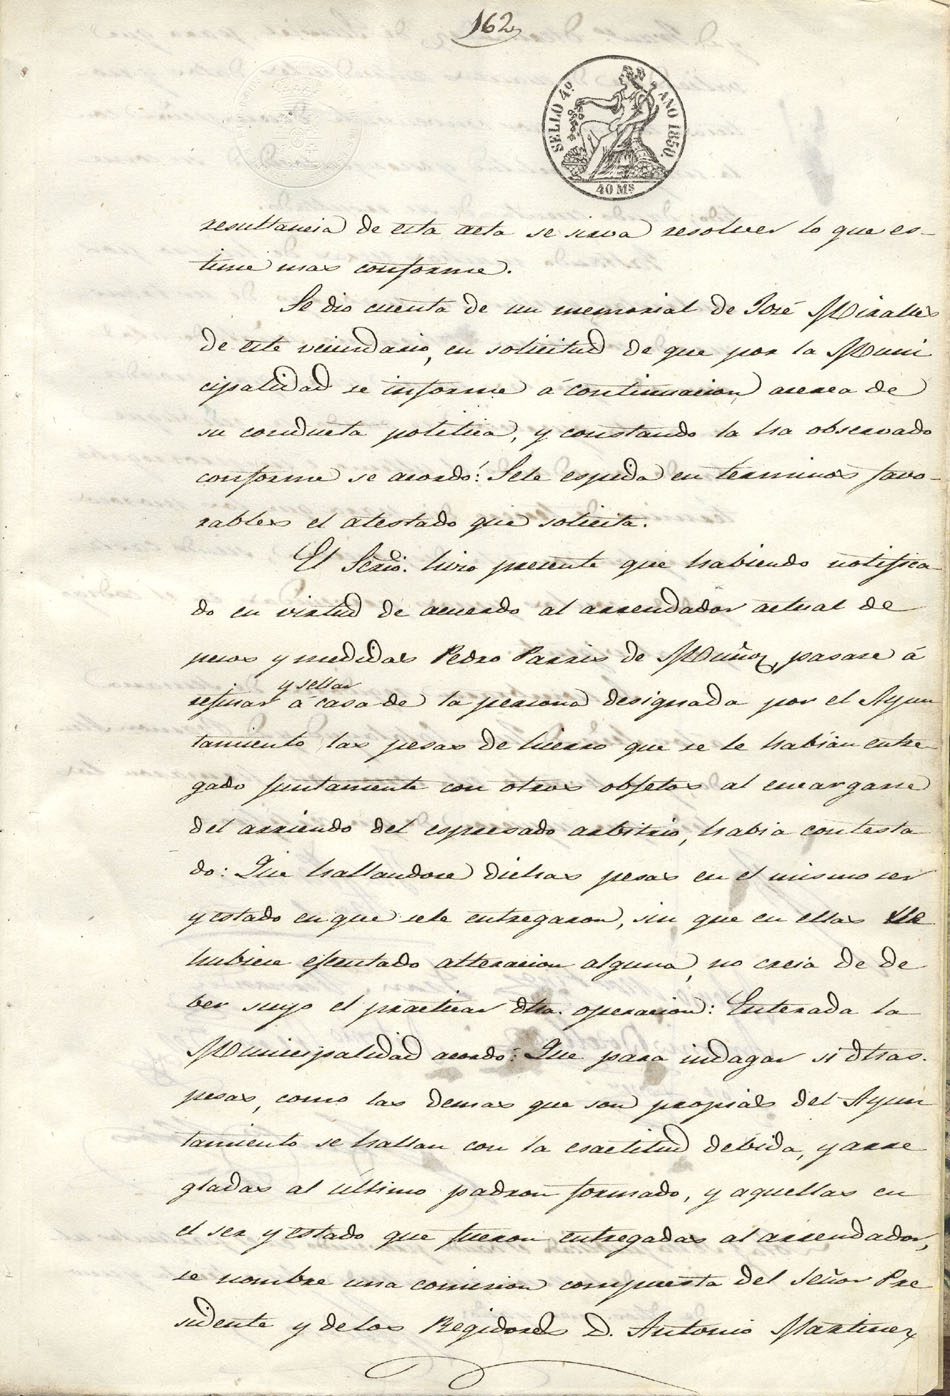 162
SELLO 4º AÑO 1850.
40 Ms
resultancia de esta acta se sirva resolver lo que es-
time mas conforme.
Se dio cuenta de un memorial de José Miralles
de este vecindario, en solicitud de que por la Muni
cipalidad se informe á continuacion acerca de
su conducta politica, y constando la ha observado
conforme se acordó: Sele espida en terminos favo-
rables el atestado que solicita.
El Srio. hizo presente que habiendo notifica-
do en virtud de acuerdo al arrendador actual de
pesos y medidas Pedro Parris de Muñoz, pasare á
refinar y sellar á casa de la persona designada por el Ayun
tamiento las pesas de hierro que se le habian entre
gado juntamente con otros objetos al encargarse
del arriendo del espresado arbitrio, habia contesta
do: Que hallandose dichas pesas en el mismo ser
y estado en que sele entregaron, sin que en ellas se
hubiese ejecutado alteracion alguna, no creia de de
ber suyo el practicar dha. operacion: Enterada la
Municipalidad acordó: Que para indagar si dhas.
pesas, como las demas que son propias del Ayun
tamiento se hallan con la esactitud debida, y arre
gladas al último padron formado, y aquellas en
el ser y estado que fueron entregadas al arrendador,
se nombre una comision compuesta del Señor Pre
sidente y de los Regidores D. Antonio Martinez